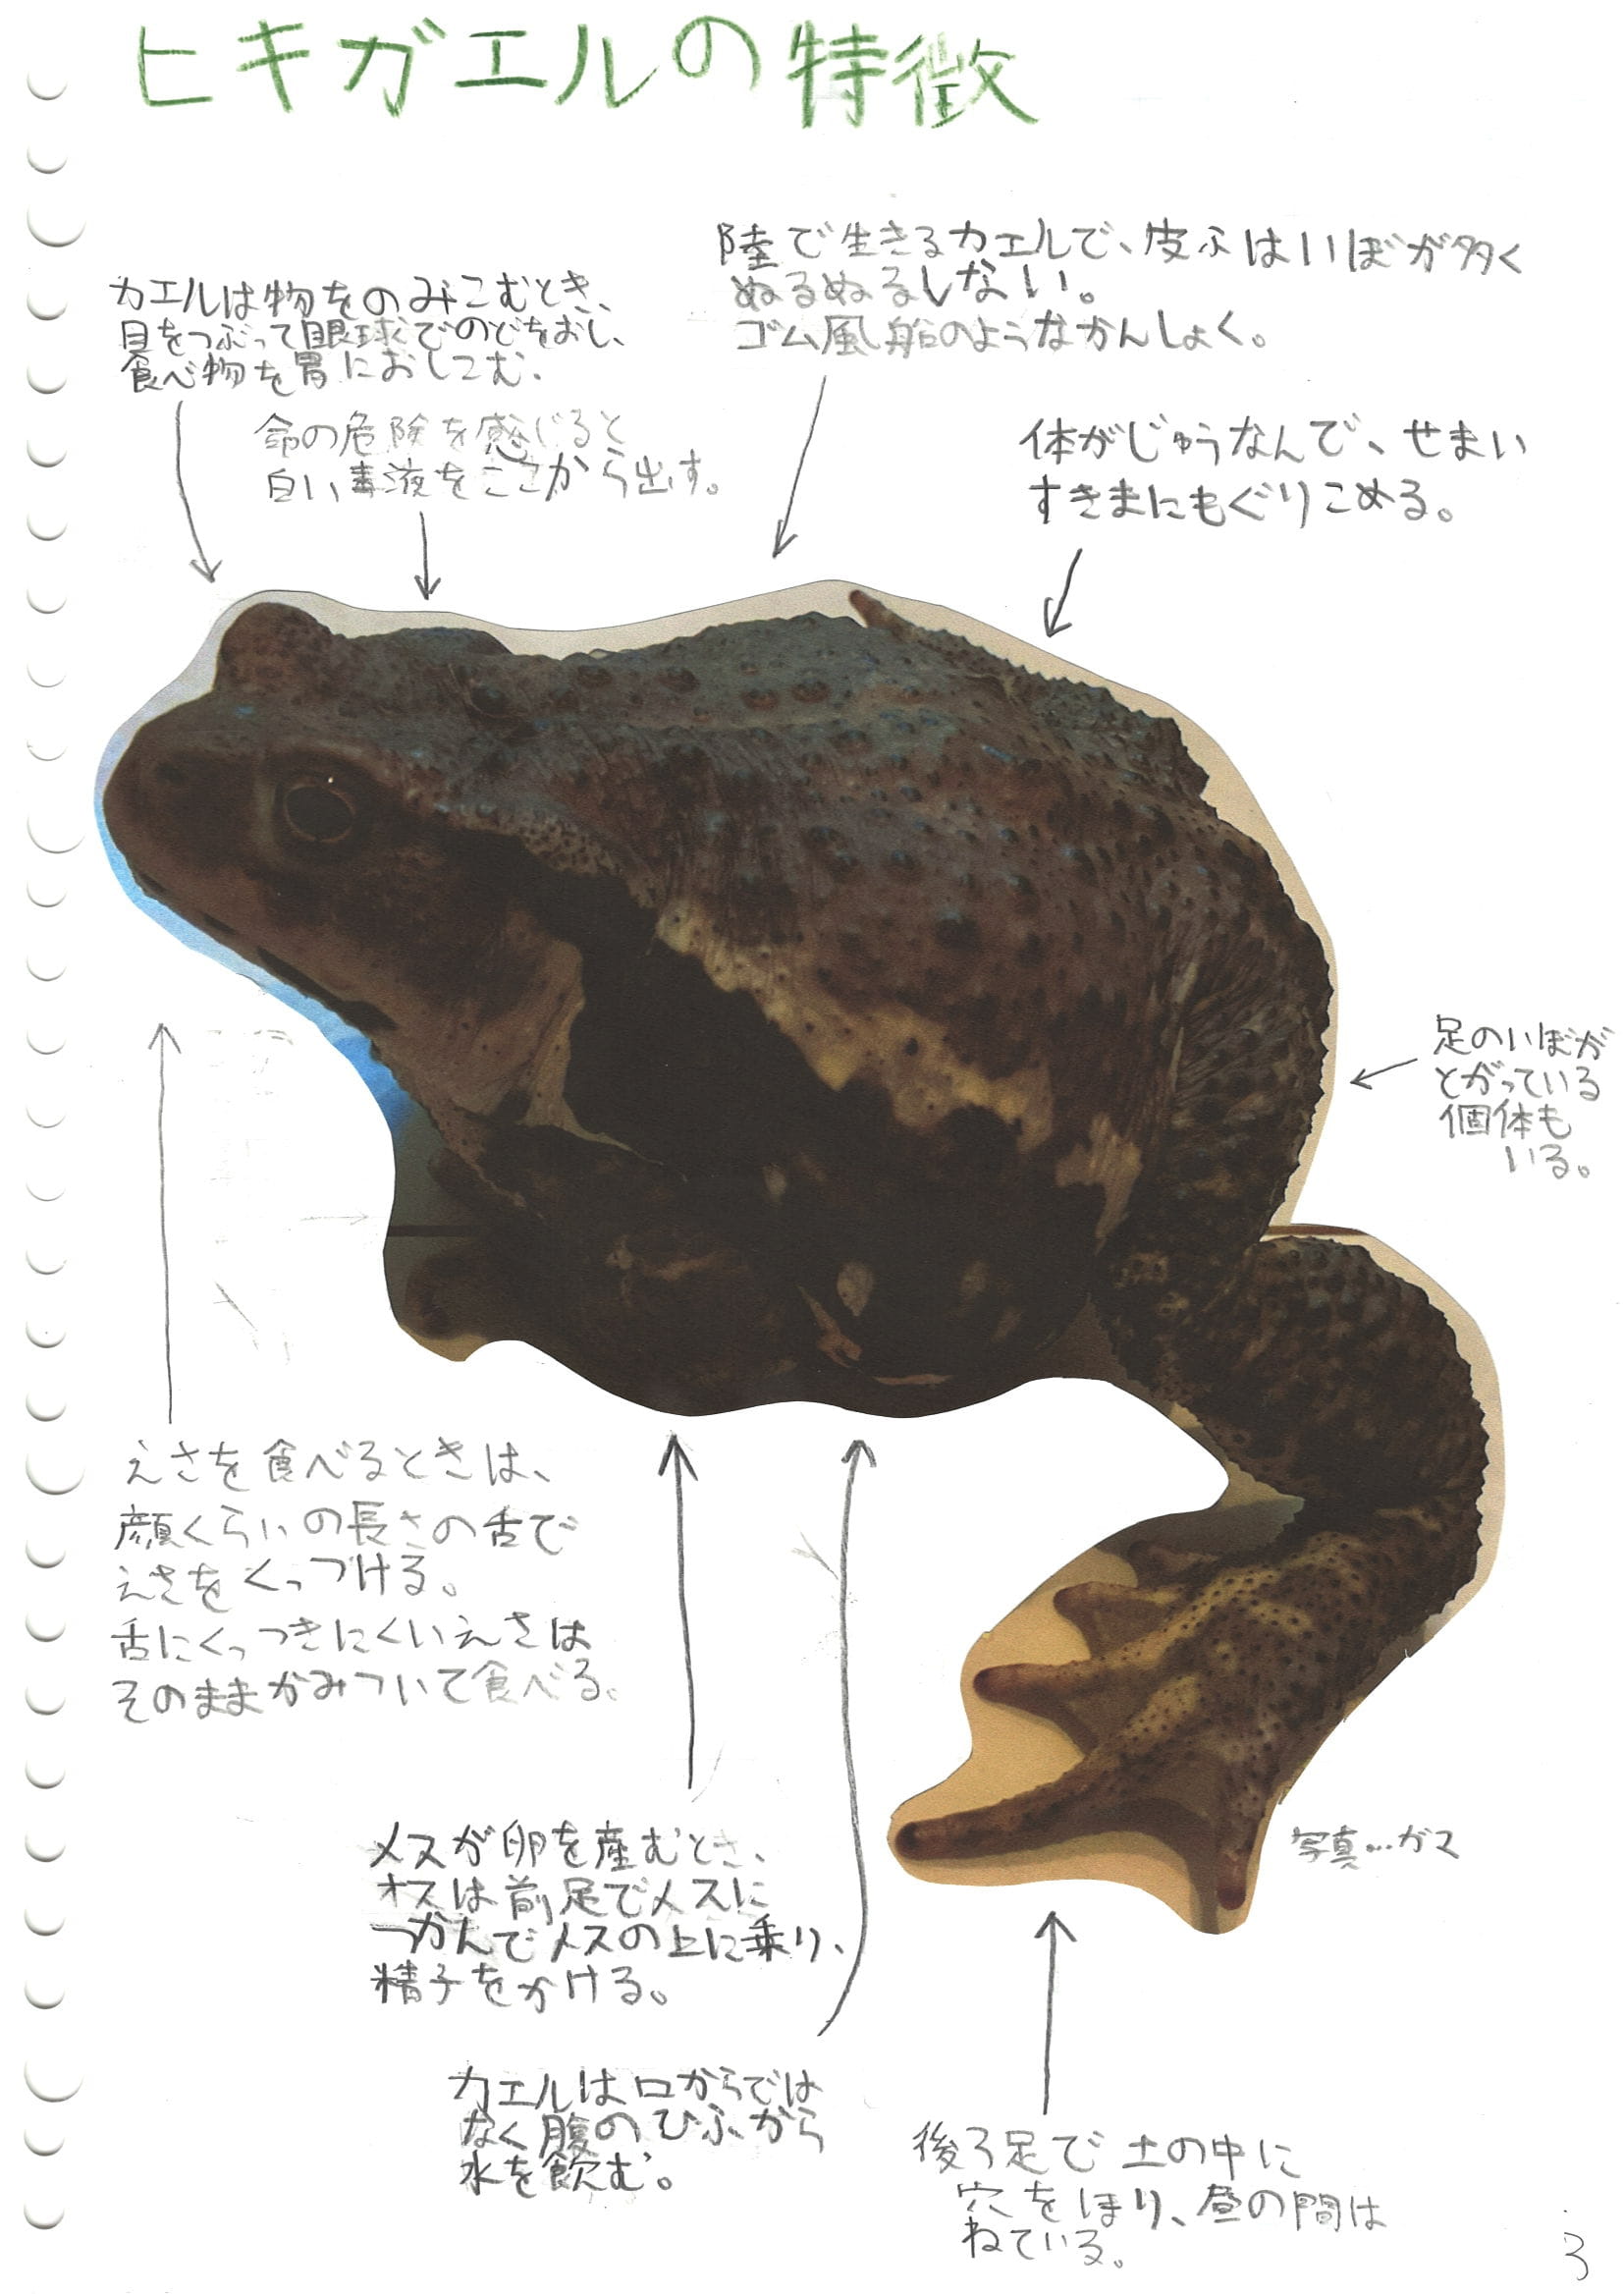 ヒキガエルの特徴
陸で生きるカエルで、皮ふはいぼが多く
ぬるぬるしない。
ゴム風船のようなかんしょく。
カエルは物をのみこむとき、
目をつぶって眼球でのどをおし、
食べ物を胃におしこむ、
命の危険を感じると
白い毒液をここから出す。
体がじゅうなんで、せまい
すきまにもぐりこめる。
足のいぼが
とがっている
個体も
いる。
えさを食べるときは、
顔くらいの長さの舌で
えさをくっつける。
舌にくっつきにくいえさは
そのままかみついて食べる。
メスが卵を産むとき、
オスは前足でメスに
つかんでメスの上に乗り、
精子をかける。
写真…ガマ
カエルは口からでは
なく腹のひふから
水を飲む。
後ろ足で土の中に
穴をほり、昼の間は
ねている。
3